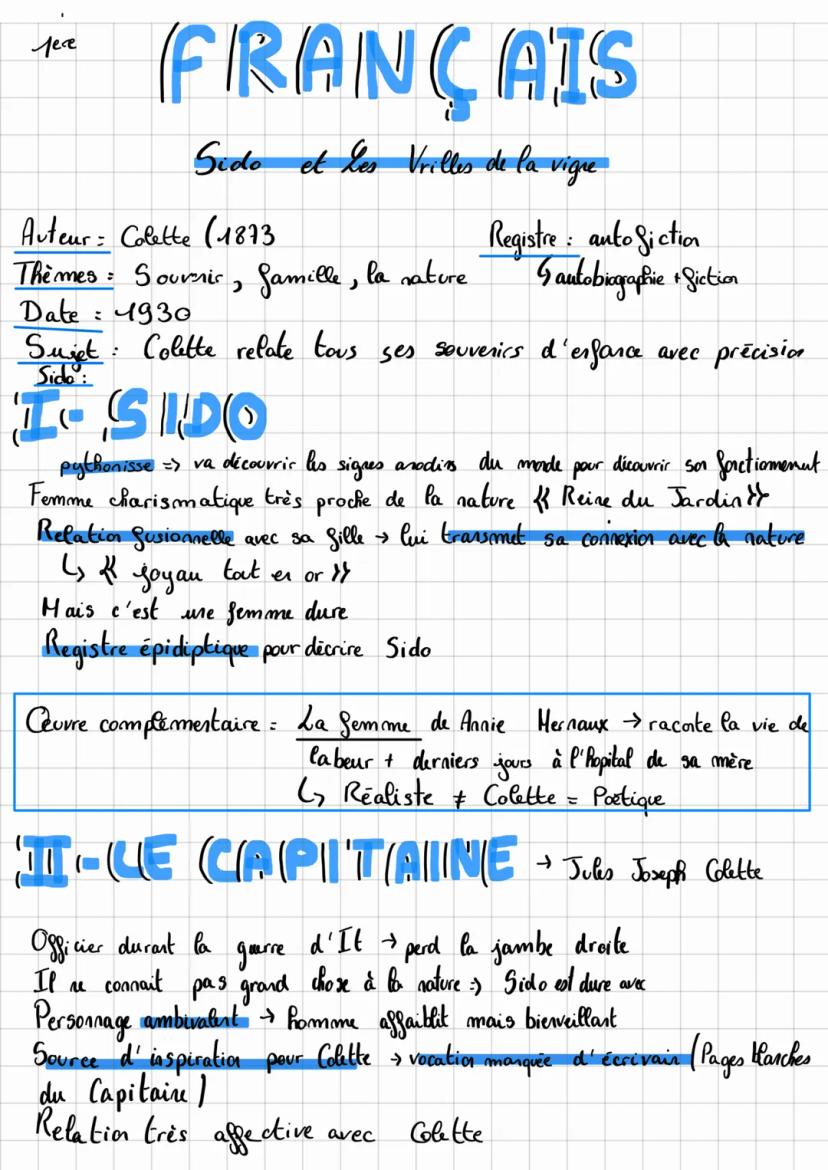 1ere
FRANÇAIS
Sido et Les Vrilles de la vigne
Auteur = Colette (1873
Registre : autofiction
Thèmes : Souvenir, famille, la nature
↳ autobiographie + fiction
Date : 1930
Sujet : Colette relate tous ses souvenirs d'enfance avec précision
Sido :
I- SIDO
pythonisse => va découvrir les signes anodins du monde pour découvrir son fonctionnement
Femme charismatique très proche de la nature « Reine du Jardin »
Relation fusionnelle avec sa fille → lui transmet sa connexion avec la nature
↳ « joyau tout en or »
Mais c'est une femme dure
Registre épidiptique pour décrire Sido
Œuvre complémentaire = La femme de Annie Hernaux → raconte la vie de
labeur + derniers jours à l'hopital de sa mère
↳ Réaliste ≠ Colette = Poètique
II-LE CAPITAINE → Jules Joseph Colette
Officier durant la guerre d'It → perd la jambe droite
Il ne connait pas grand chose à la nature => Sido est dure avec
Personnage ambivalent → homme affaiblit mais bienveillant
Source d'inspiration pour Colette → vocation manquée d'écrivain (Pages blanches
du Capitaine)
Relation très affective avec Colette